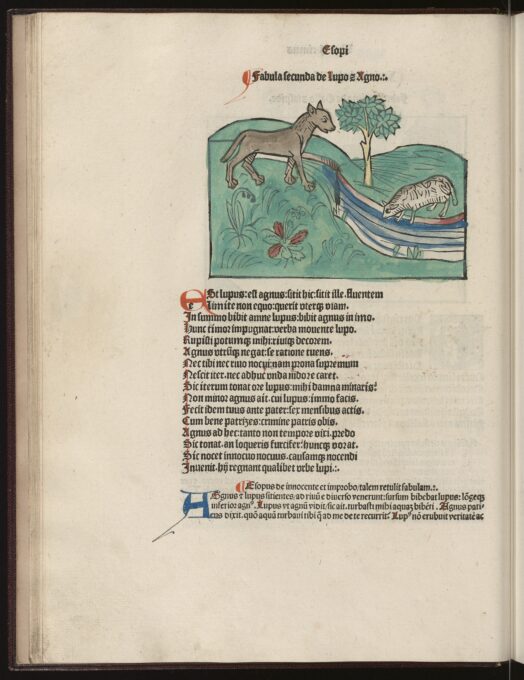 Esopi
Fabula secunda de Lupo ⁊ Agno.:.
ESt lupus: est agnus: sitit hic: sitit ille. fluentem
e Limite non equo: querit uterqꝫ viam.
In summo bibit amne lupus: bibit agnus in imo.
Hunc timor impugnat: verba mouente lupo.
Rupisti potumqꝫ mihi: riuiqꝫ decorem.
Agnus utrūqꝫ negat: se ratione tuens.
Nec tibi nec riuo nocui: nam prona supremum
Nescit iter. nec adhuc vnda nidore caret.
Sic iterum tonat ore lupus: mihi damna minaris?
Non minor agnus ait. cui lupus: immo facis.
Fecit idem tuus ante pater: sex mensibus actis.
Cum bene patrizes: crimine patris obis.
Agnus ad hec: tanto non tempore vixi. predo
Sic tonat. an loqueris furcifer: huncqꝫ vorat.
Sic nocet innocuo nocuus. causamqꝫ nocendi
Inuenit. hij regnant qualibet vrbe lupi:.
Esopus de innocente et improbo: talem retulit fabulam.:.
AGnus ⁊ lupus sitientes: ad riuū e diuerso venerunt: sursum bibebat lupus: lōgeqꝫ
inferior agnꝰ. Lupus vt agnū vidit: sic ait. turbasti mihi aquaꝫ bibēti. Agnus pati-
ens dixit. quō aquā turbaui tibi q̄ ad me de te recurrit? Lupꝰ nō erubuit veritatē ac